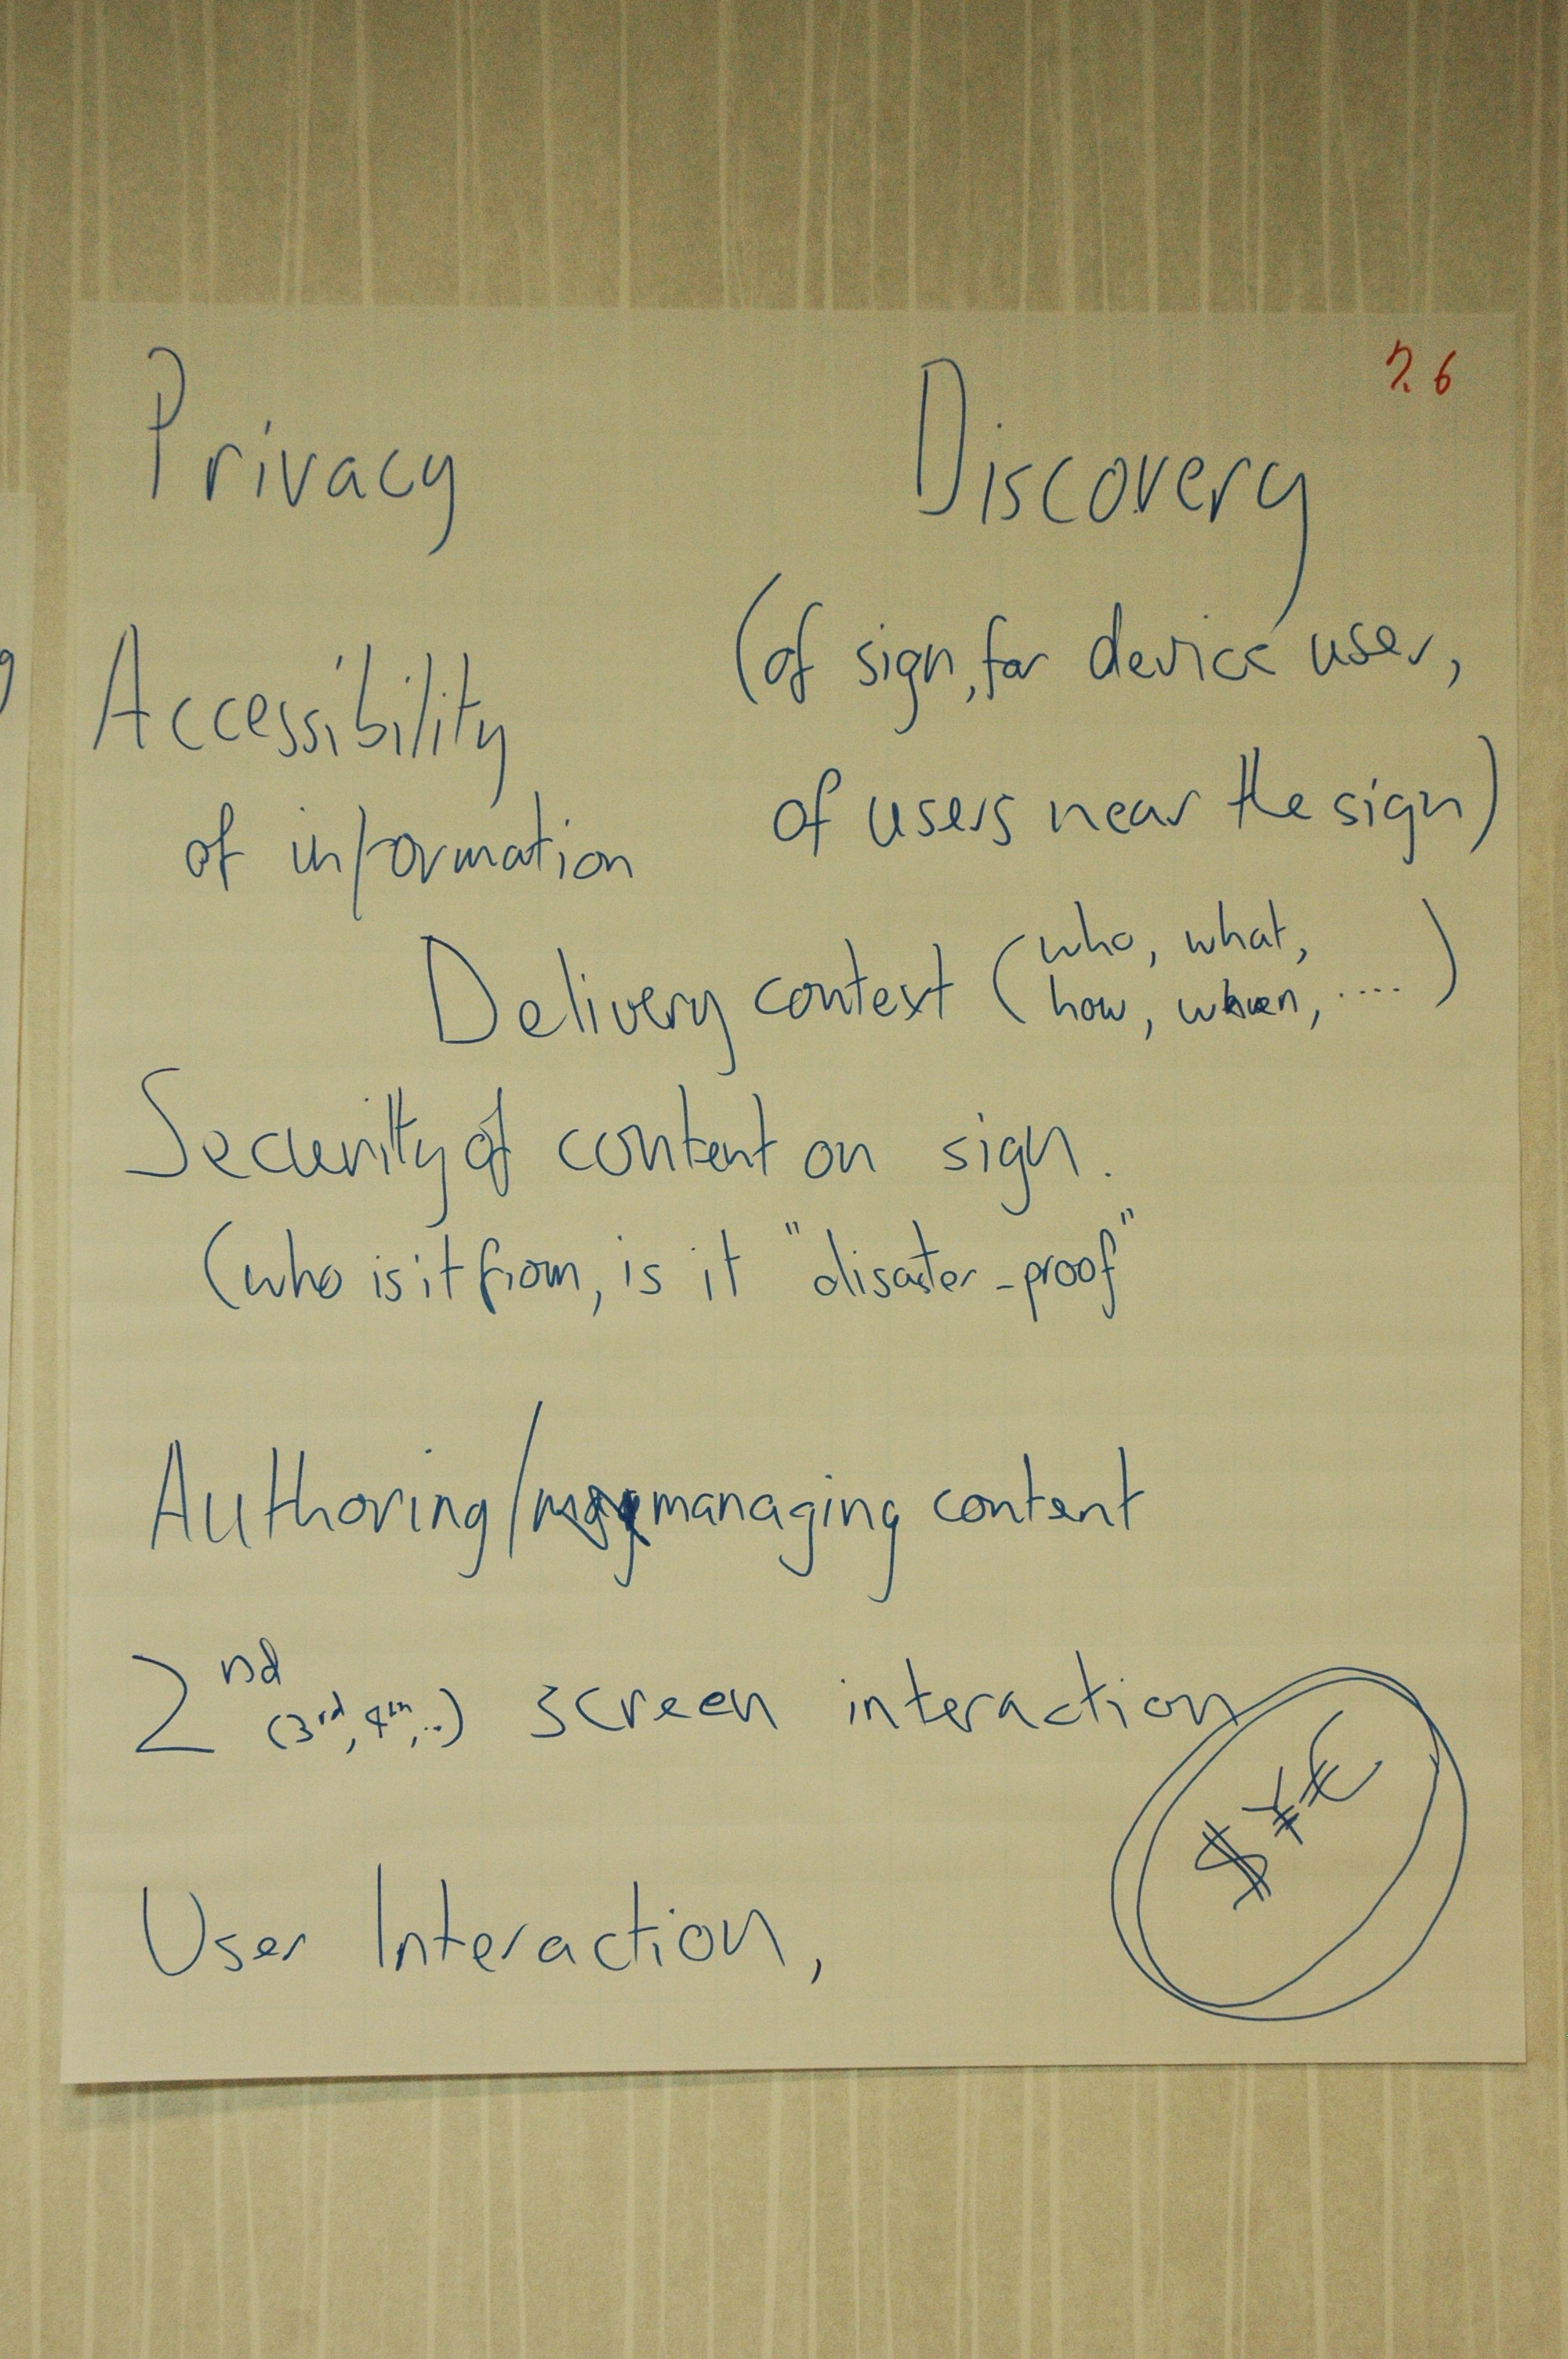 7.6
Privacy
Discovery
(of sign, for device user,
of users near the sign)
Accessibility
of information
Delivery context (who, what,
how, when, ....)
Security of content on sign.
(who is it from, is it "disaster-proof"
Authoring/managing content
2nd (3rd, 4th, ..) screen interaction
$ ¥ €
User Interaction,